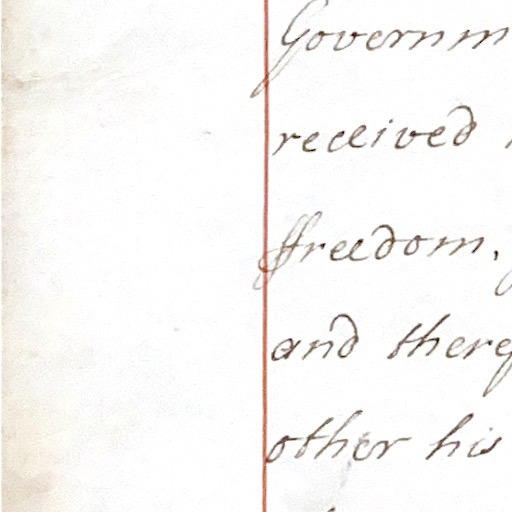 Governm
received
ffreedom,
and theref
other his